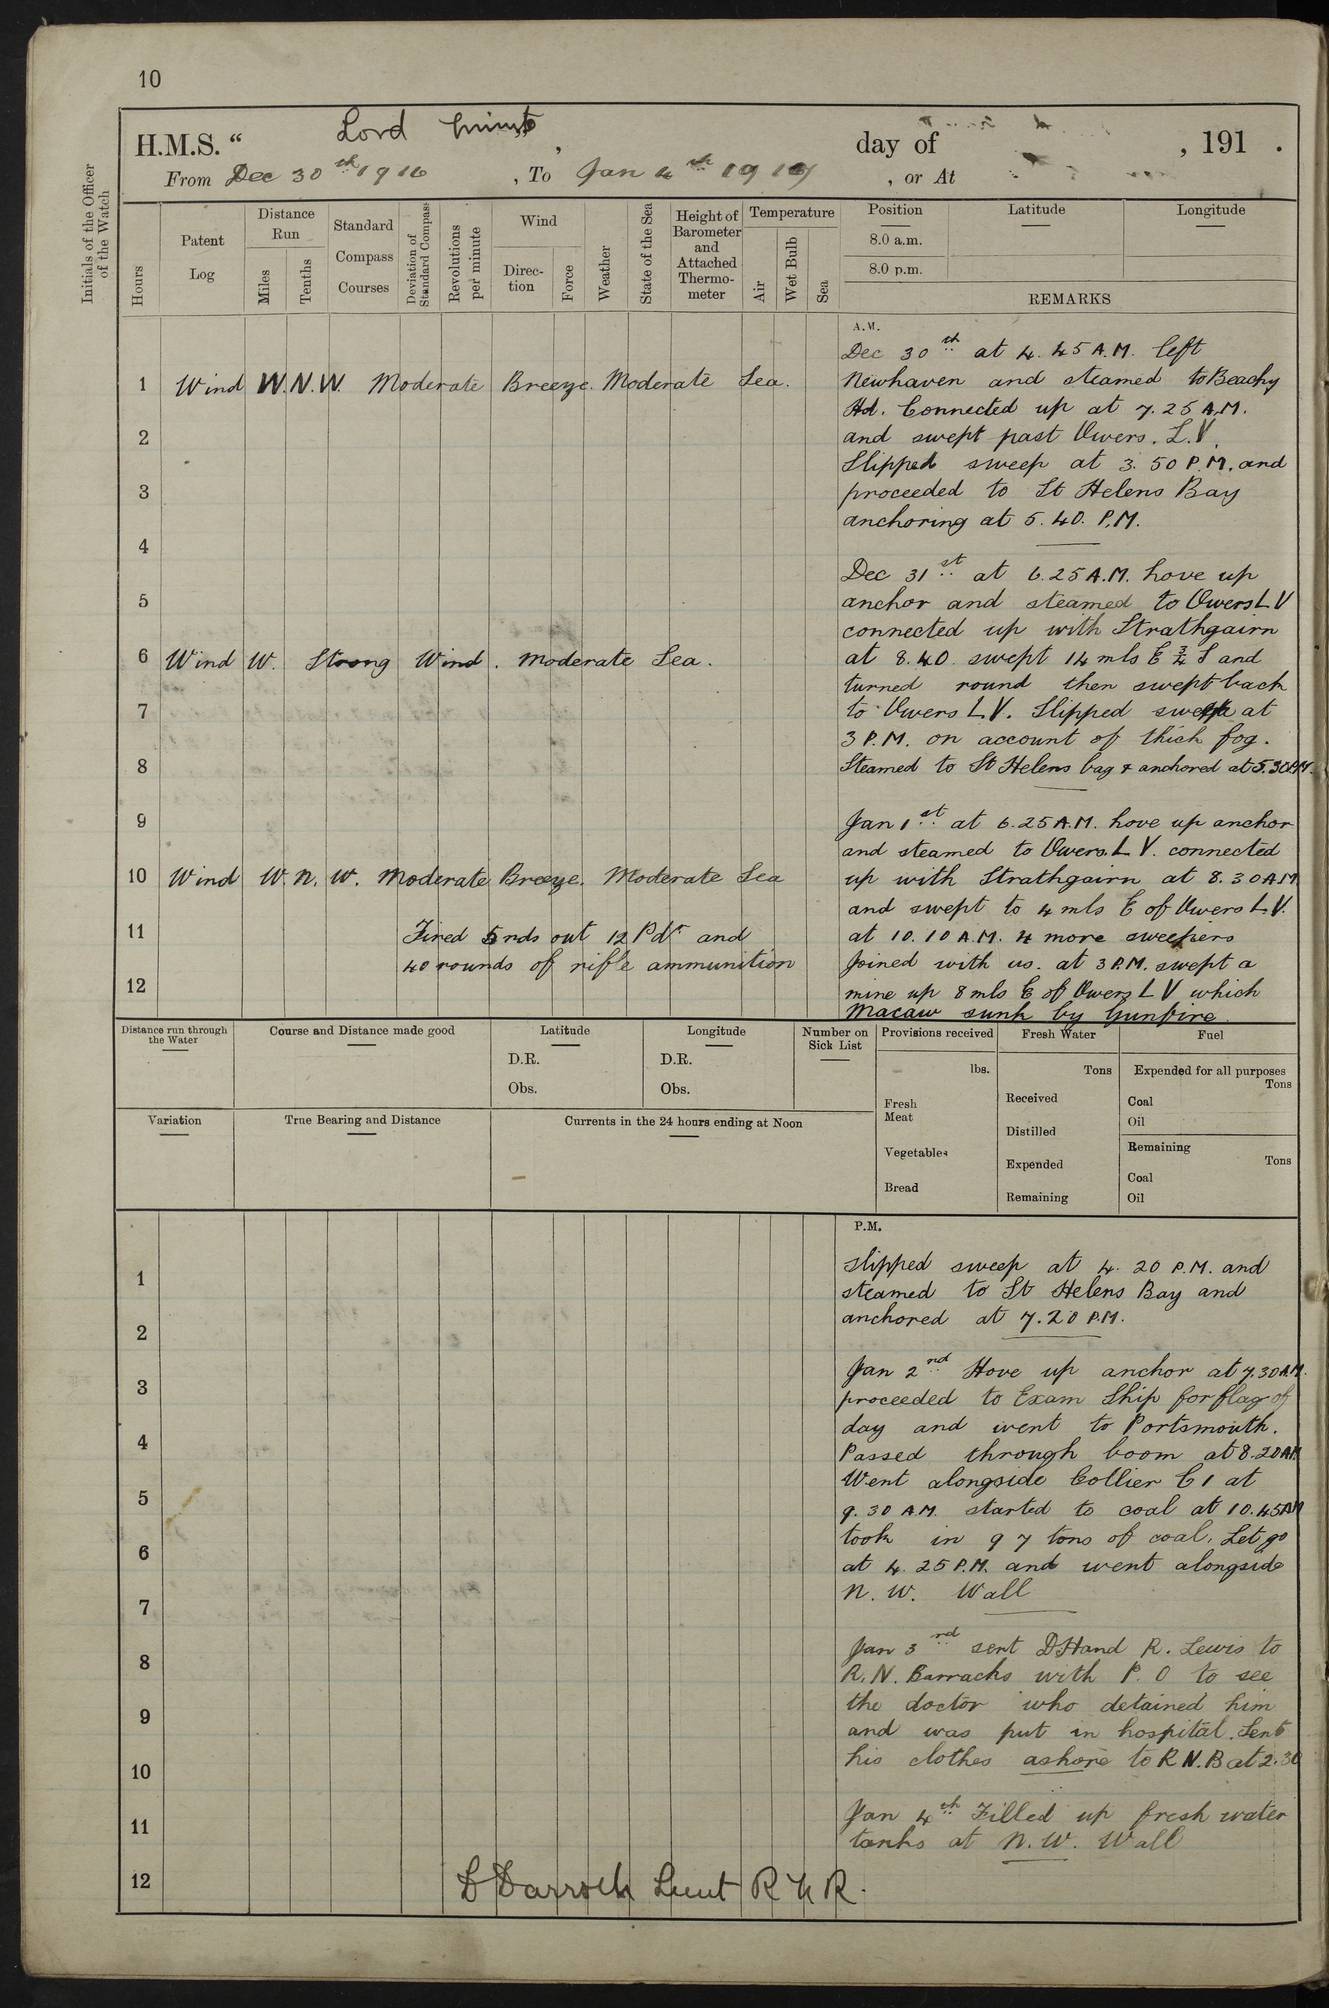 10
H.M.S. “ Lord Minto ” day of , 191 .
From Dec 30th 1916 , To Jan 4th 1917 , or At
Initials of the Officer of the Watch
Hours
Patent Log
Distance Run
Miles
Tenths
Standard Compass Courses
Deviation of Standard Compass
Revolutions per minute
Wind
Direc-tion
Force
Weather
State of the Sea
Height of Barometer and Attached Thermo-meter
Temperature
Air
Wet Bulb
Sea
Position
8.0 a.m.
8.0 p.m.
Latitude
Longitude
REMARKS
A.M.
1 Wind W.N.W. Moderate Breeze. Moderate Sea.
2
3
4
5
6 Wind W. Strong Wind. Moderate Sea.
7
8
9
10 Wind W.N.W. Moderate Breeze. Moderate Sea
11 Fired 5 rnds out 12 Pdr and
40 rounds of rifle ammunition
12
Dec 30th at 4.45 A.M. left
Newhaven and steamed to Beachy
Hd. Connected up at 7.25 A.M.
and swept past Owers. L.V.
Slipped sweep at 3.50 P.M. and
proceeded to St Helens Bay
anchoring at 5.40. P.M.
Dec 31st at 6.25 A.M. hove up
anchor and steamed to Owers L V
connected up with Strathgairn
at 8.40 swept 14 mls E ¾ S and
turned round then swept back
to Owers L V. Slipped sweep at
3 P.M. on account of thick fog.
Steamed to St Helens bay & anchored at 5.30 P.M.
Jan 1st at 6.25 A.M. hove up anchor
and steamed to Owers. L V. connected
up with Strathgairn at 8.30 AM
and swept to 4 mls E of Owers L V.
at 10.10 A.M. 4 more sweepers
Joined with us. at 3 P.M. swept a
mine up 8 mls E of Owers L V which
Macaw sunk by Gunfire.
Distance run through the Water
Course and Distance made good
Latitude
D.R.
Obs.
Longitude
D.R.
Obs.
Number on Sick List
Provisions received
lbs.
Fresh Meat
Vegetables
Bread
Fresh Water
Tons
Received
Distilled
Expended
Remaining
Fuel
Expended for all purposes
Tons
Coal
Oil
Remaining
Tons
Coal
Oil
Variation
True Bearing and Distance
Currents in the 24 hours ending at Noon
P.M.
1
2
3
4
5
6
7
8
9
10
11
12
slipped sweep at 4.20 P.M. and
steamed to St Helens Bay and
anchored at 7.20 P.M.
Jan 2nd Hove up anchor at 7.30 A.M.
proceeded to Exam Ship for flag of
day and went to Portsmouth.
Passed through boom at 8.20 AM
Went alongside Collier C 1 at
9.30 A.M. started to coal at 10.45 AM
took in 97 tons of coal. Let go
at 4.25 P.M. and went alongside
N. W. Wall
Jan 3rd sent D Hand R. Lewis to
R.N. Barracks with P. O to see
the doctor who detained him
and was put in hospital. Sent
his clothes ashore to R N.B at 2.30
Jan 4th Filled up fresh water
tanks at N.W. Wall
D Darroch Lieut R N R.